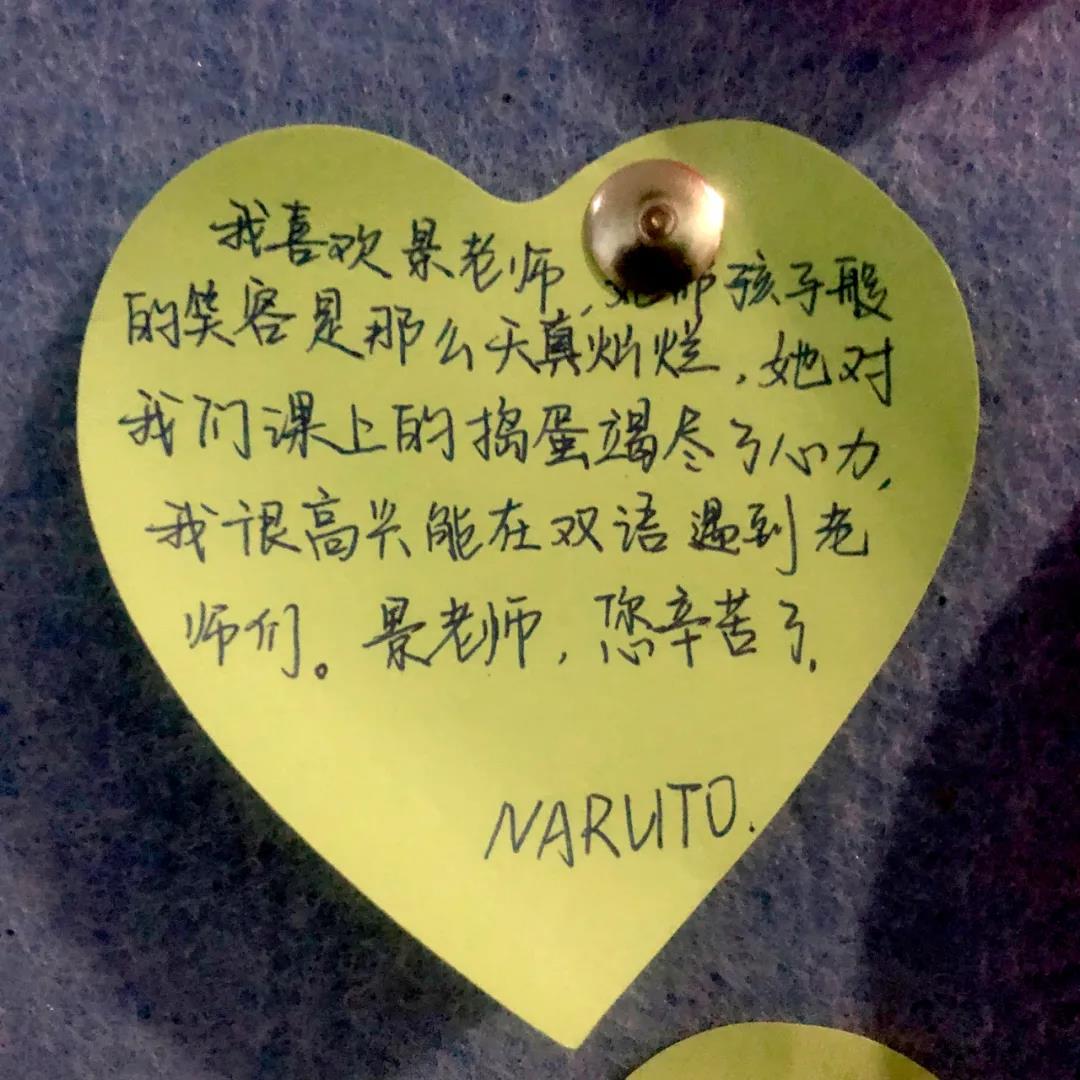 我喜欢景老师,她那孩子般
的笑容是那么天真灿烂,她对
我们课上的捣蛋竭尽了心力,
我很高兴能在双语遇到老
师们。景老师,您辛苦了.
NARUTO.